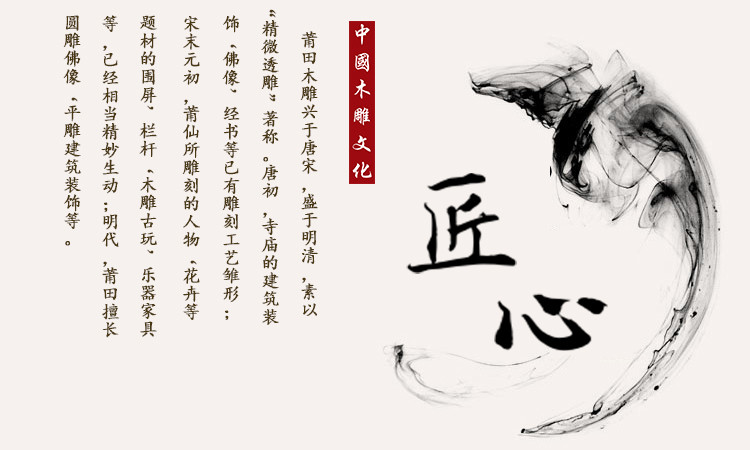 匠
心
中國木雕文化
莆田木雕兴于唐宋,盛于明清,素以
“精微透雕”著称。唐初,寺庙的建筑装
饰“佛像”经书等已有雕刻工艺雏形;
宋末元初,莆仙所雕刻的人物“花卉等
题材的围屏”栏杆“木雕古玩”乐器家具
等,已经相当精妙生动;明代,莆田擅长
圆雕佛像“平雕建筑装饰等。